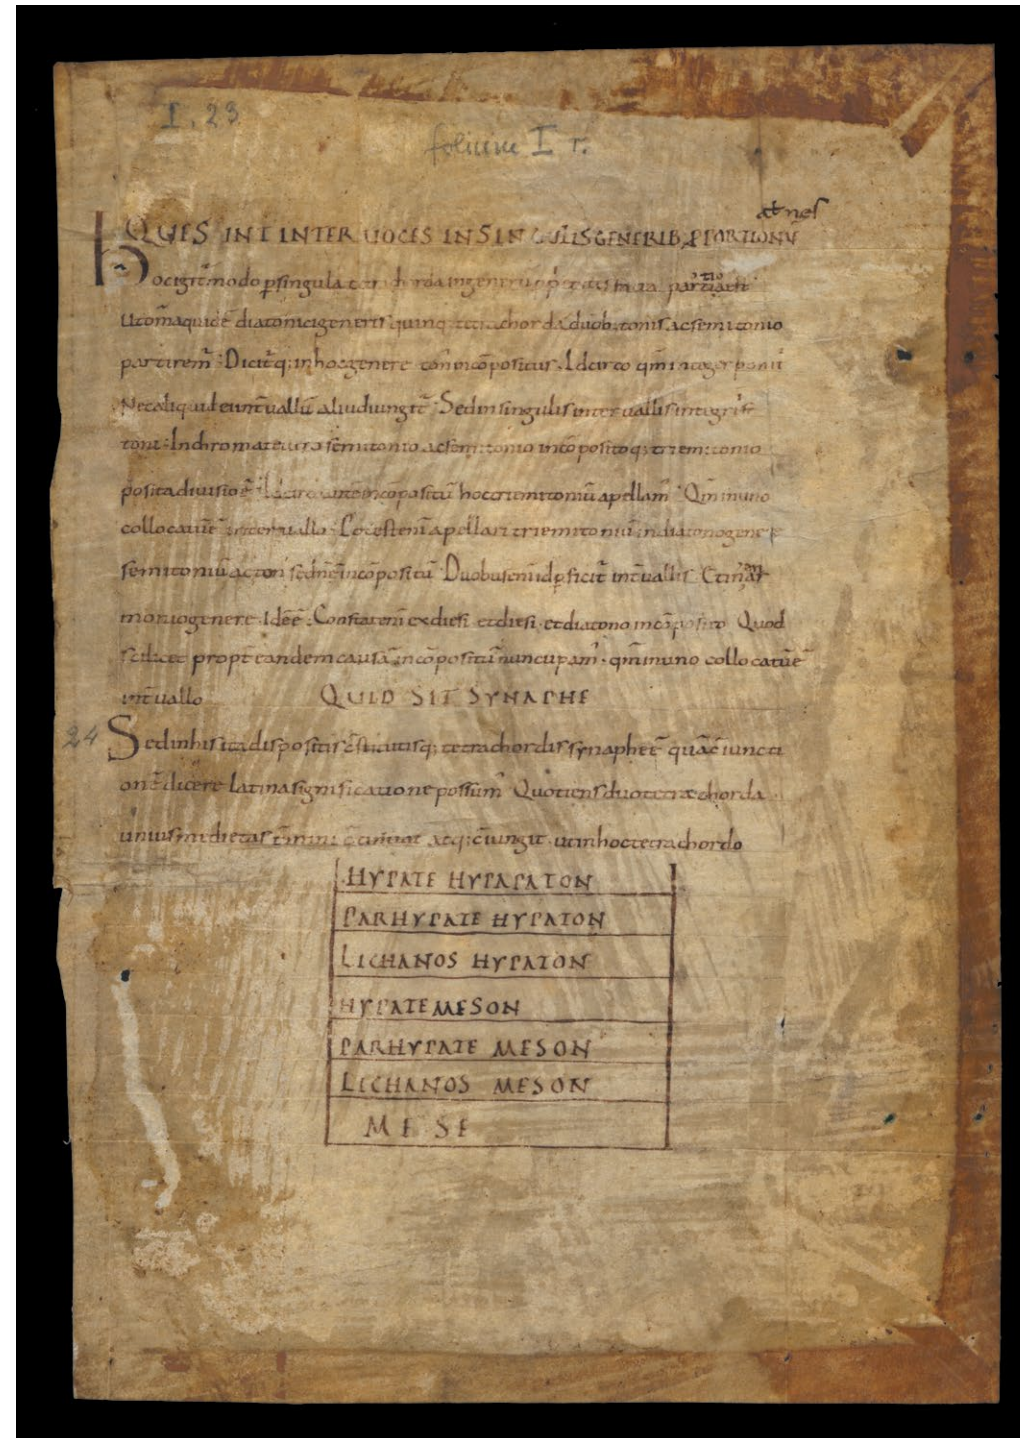 I. 23
folium I r.
at nes
QUES INT INTER UOCES IN SINGULIS GENERIB; PPORTIONŪ
hoc igit̄ modo ꝑ singula
Ut om̄a quidē diatonici generis quinq; tetrachorda duob; tonis ac semitonio
partirem̄ · Dicit̄q; in hoc genere ton; incōpositus · Idcirco qm̄ integer ponit̄
Nec aliquid ei int̄uallū aliud iungit̄ · Sed in singulis interuallis integri st̄
toni · In chromate uero semitonio ac semitonio incōposito q; triemitonio
posita diuisio ē · Idcirco autē incōpositū hoc triemitoniū apellam̄ · Qm̄ in uno
collocatū ē interuallo · Potest eni apellari triemitoniū in diatono genere
semitoniū ac ton; sed n̄ ē incōpositū · Duobus eni id ꝑficit̄ int̄uallis · Et in
monio genere · Idē ē · Constat eni ex diesi et diesi et diatono incōposito Quod
scilicet propt̄ eandem causā incōpositū nuncupam̄ · qm̄ in uno collocatū ē
int̄uallo QUID SIT SYNAPHE
24 Sed in his ita dispositis c̄stitutisq; tetrachordis synaphe ē quā c̄iuncti
onē dicere latina significatione possum̄ Quotiens duo tetrachorda
unius medietas t̄mini c̄tinuat atq; c̄iungit · ut in hoc tetrachordo
HYPATE HYPAPATON
PARHYPATE HYPATON
LICHANOS HYPATON
HYPATE MESON
PARHYPATE MESON
LICHANOS MESON
MESE